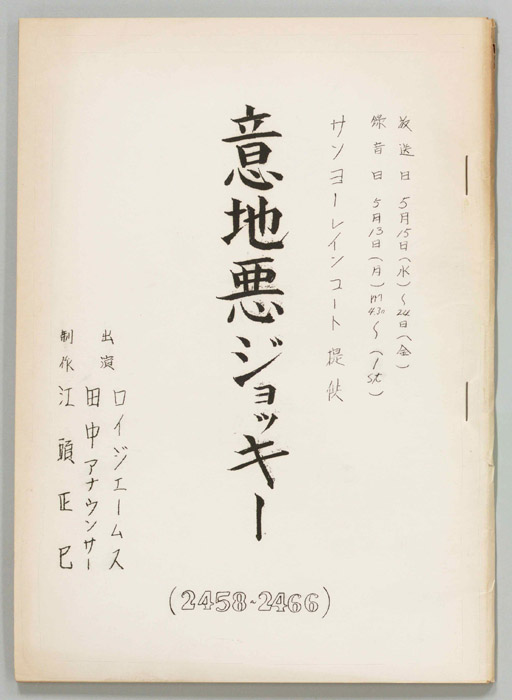 放送日 5月15日(水)~24日(金)
録音日 5月13日(月)PM4.30~(1st)
サンヨーレインコート 提供
意地悪ジョッキー
出演 ロイジエームス
田中アナウンサー
制作 江頭正巳
(2458~2466)